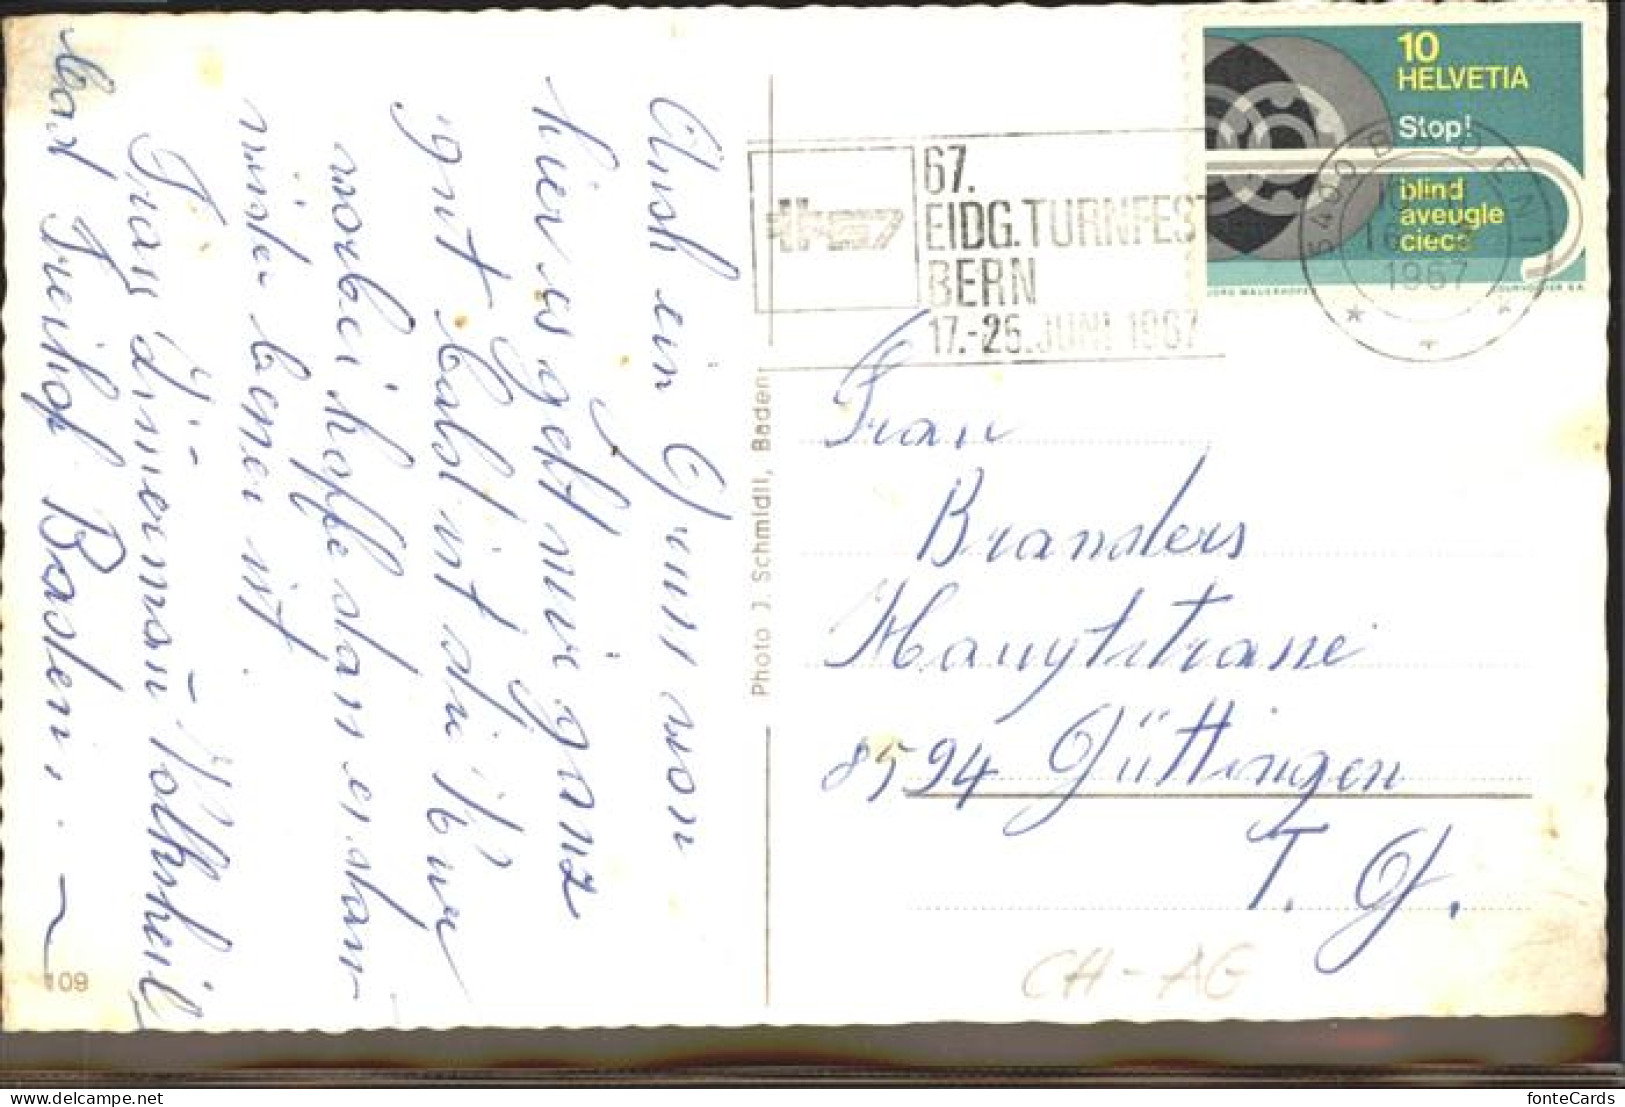 Auch ein Gruss von
hier es geht mir ganz
gut bald ist die Kur
vorbei hoffe dass es dan
wieder besser ist
Frau Zimmermann
Bad Freihof Baden.
109
Photo J. Schmidli, Baden
67.
EIDG. TURNFEST
BERN
17.-25. JUNI 1967
10
HELVETIA
Stop!
blind
aveugle
cieco
5400 BADEN 1
1967
Frau
Branders
Hauptstrasse
8594 Güttingen
T. G.
CH-AG
fonteCards